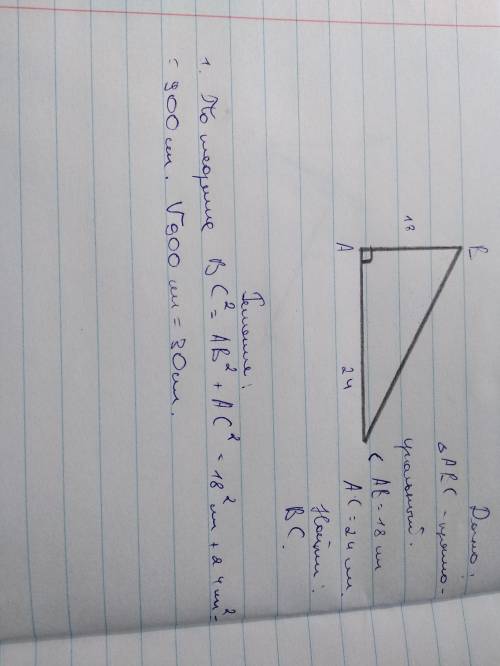 Дано:
△ABC – прямо-
угольный.
AB = 18 см
AC = 24 см.
Найти:
BC.
B
18
A
24
C
Решение:
1. По теореме BC² = AB² + AC² = 18² см + 24 см² =
= 900 см. √900 см = 30 см.